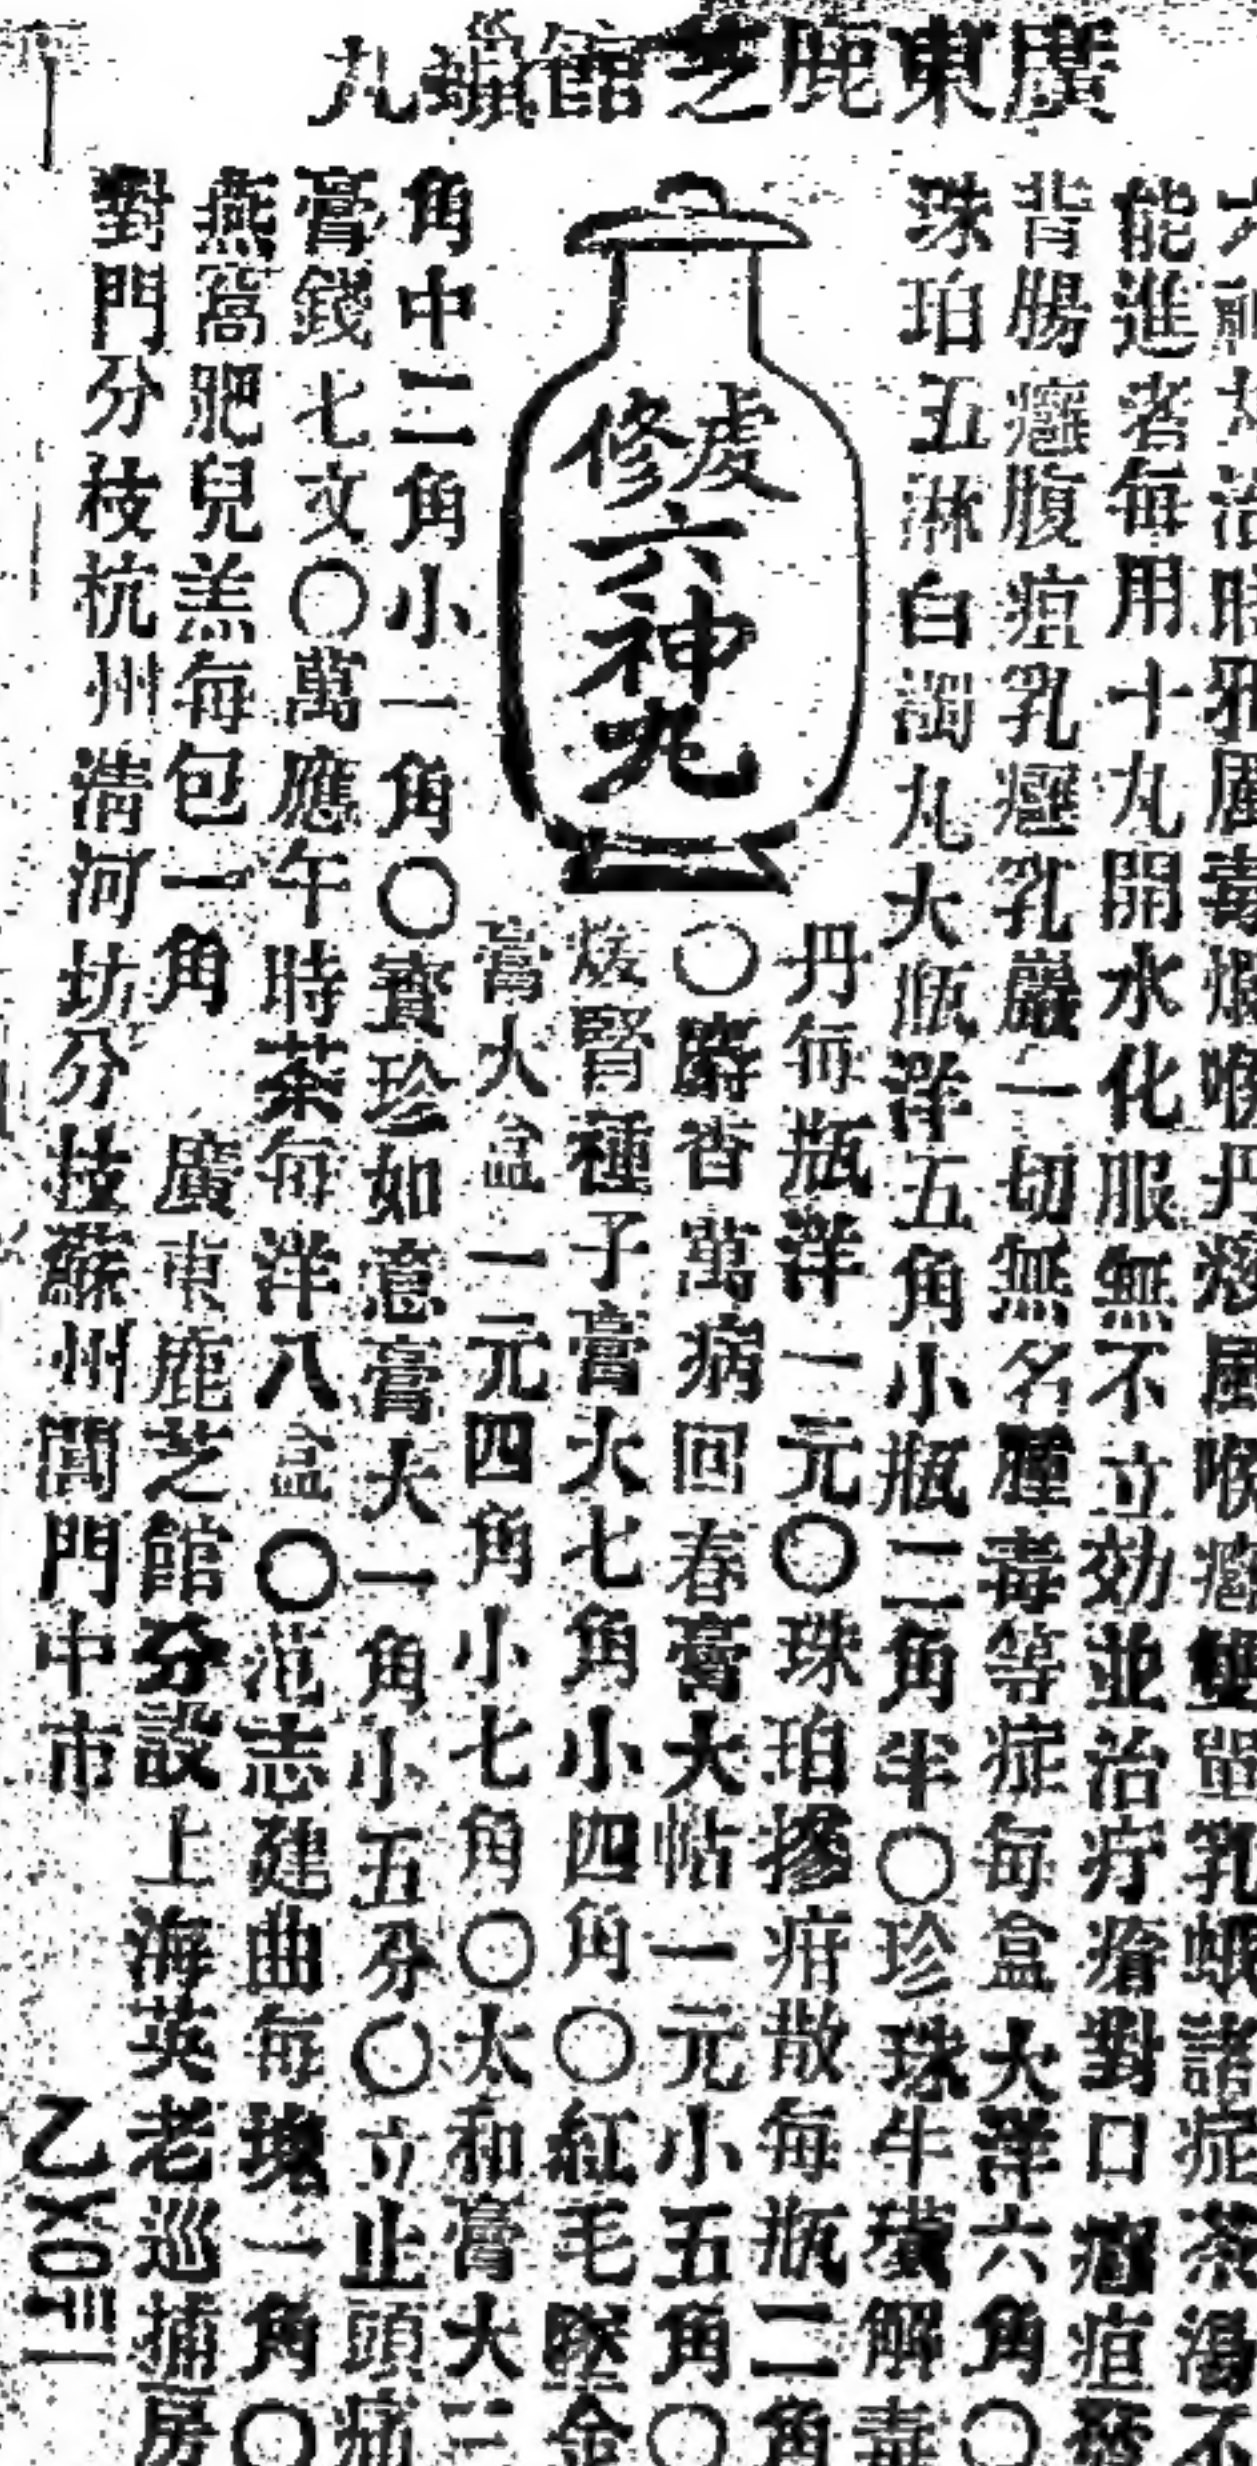 廣東鹿芝館蠟丸
六神丸治時邪厲毒爛喉丹痧風喉雙單乳蛾諸症茶湯不
能進者每用十丸開水化服無不立効並治疔瘡對口疽發
背腸癰腹疽乳癰乳巖一切無名腫毒等症每盒大洋六角〇
珠珀五淋白濁丸大瓶洋五角小瓶二角半〇珍珠牛璜解毒
虔修
六神丸
丹每瓶洋一元〇珠珀摻疳散每瓶二角
〇麝香萬病回春膏大帖一元小五角〇
煖腎種子膏大七角小四角〇紅毛墜金
膏大盒一元四角小七角〇太和膏大二
角中二角小一角〇寶珍如意膏大一角小五分〇立止頭痛
膏錢七文〇萬應午時茶每洋八盒〇范志建曲每塊一角〇
燕窩肥兒羔每包一角 廣東鹿芝館分設上海英老巡捕房
對門分枝杭州清河坊分枝蘇州閶門中市